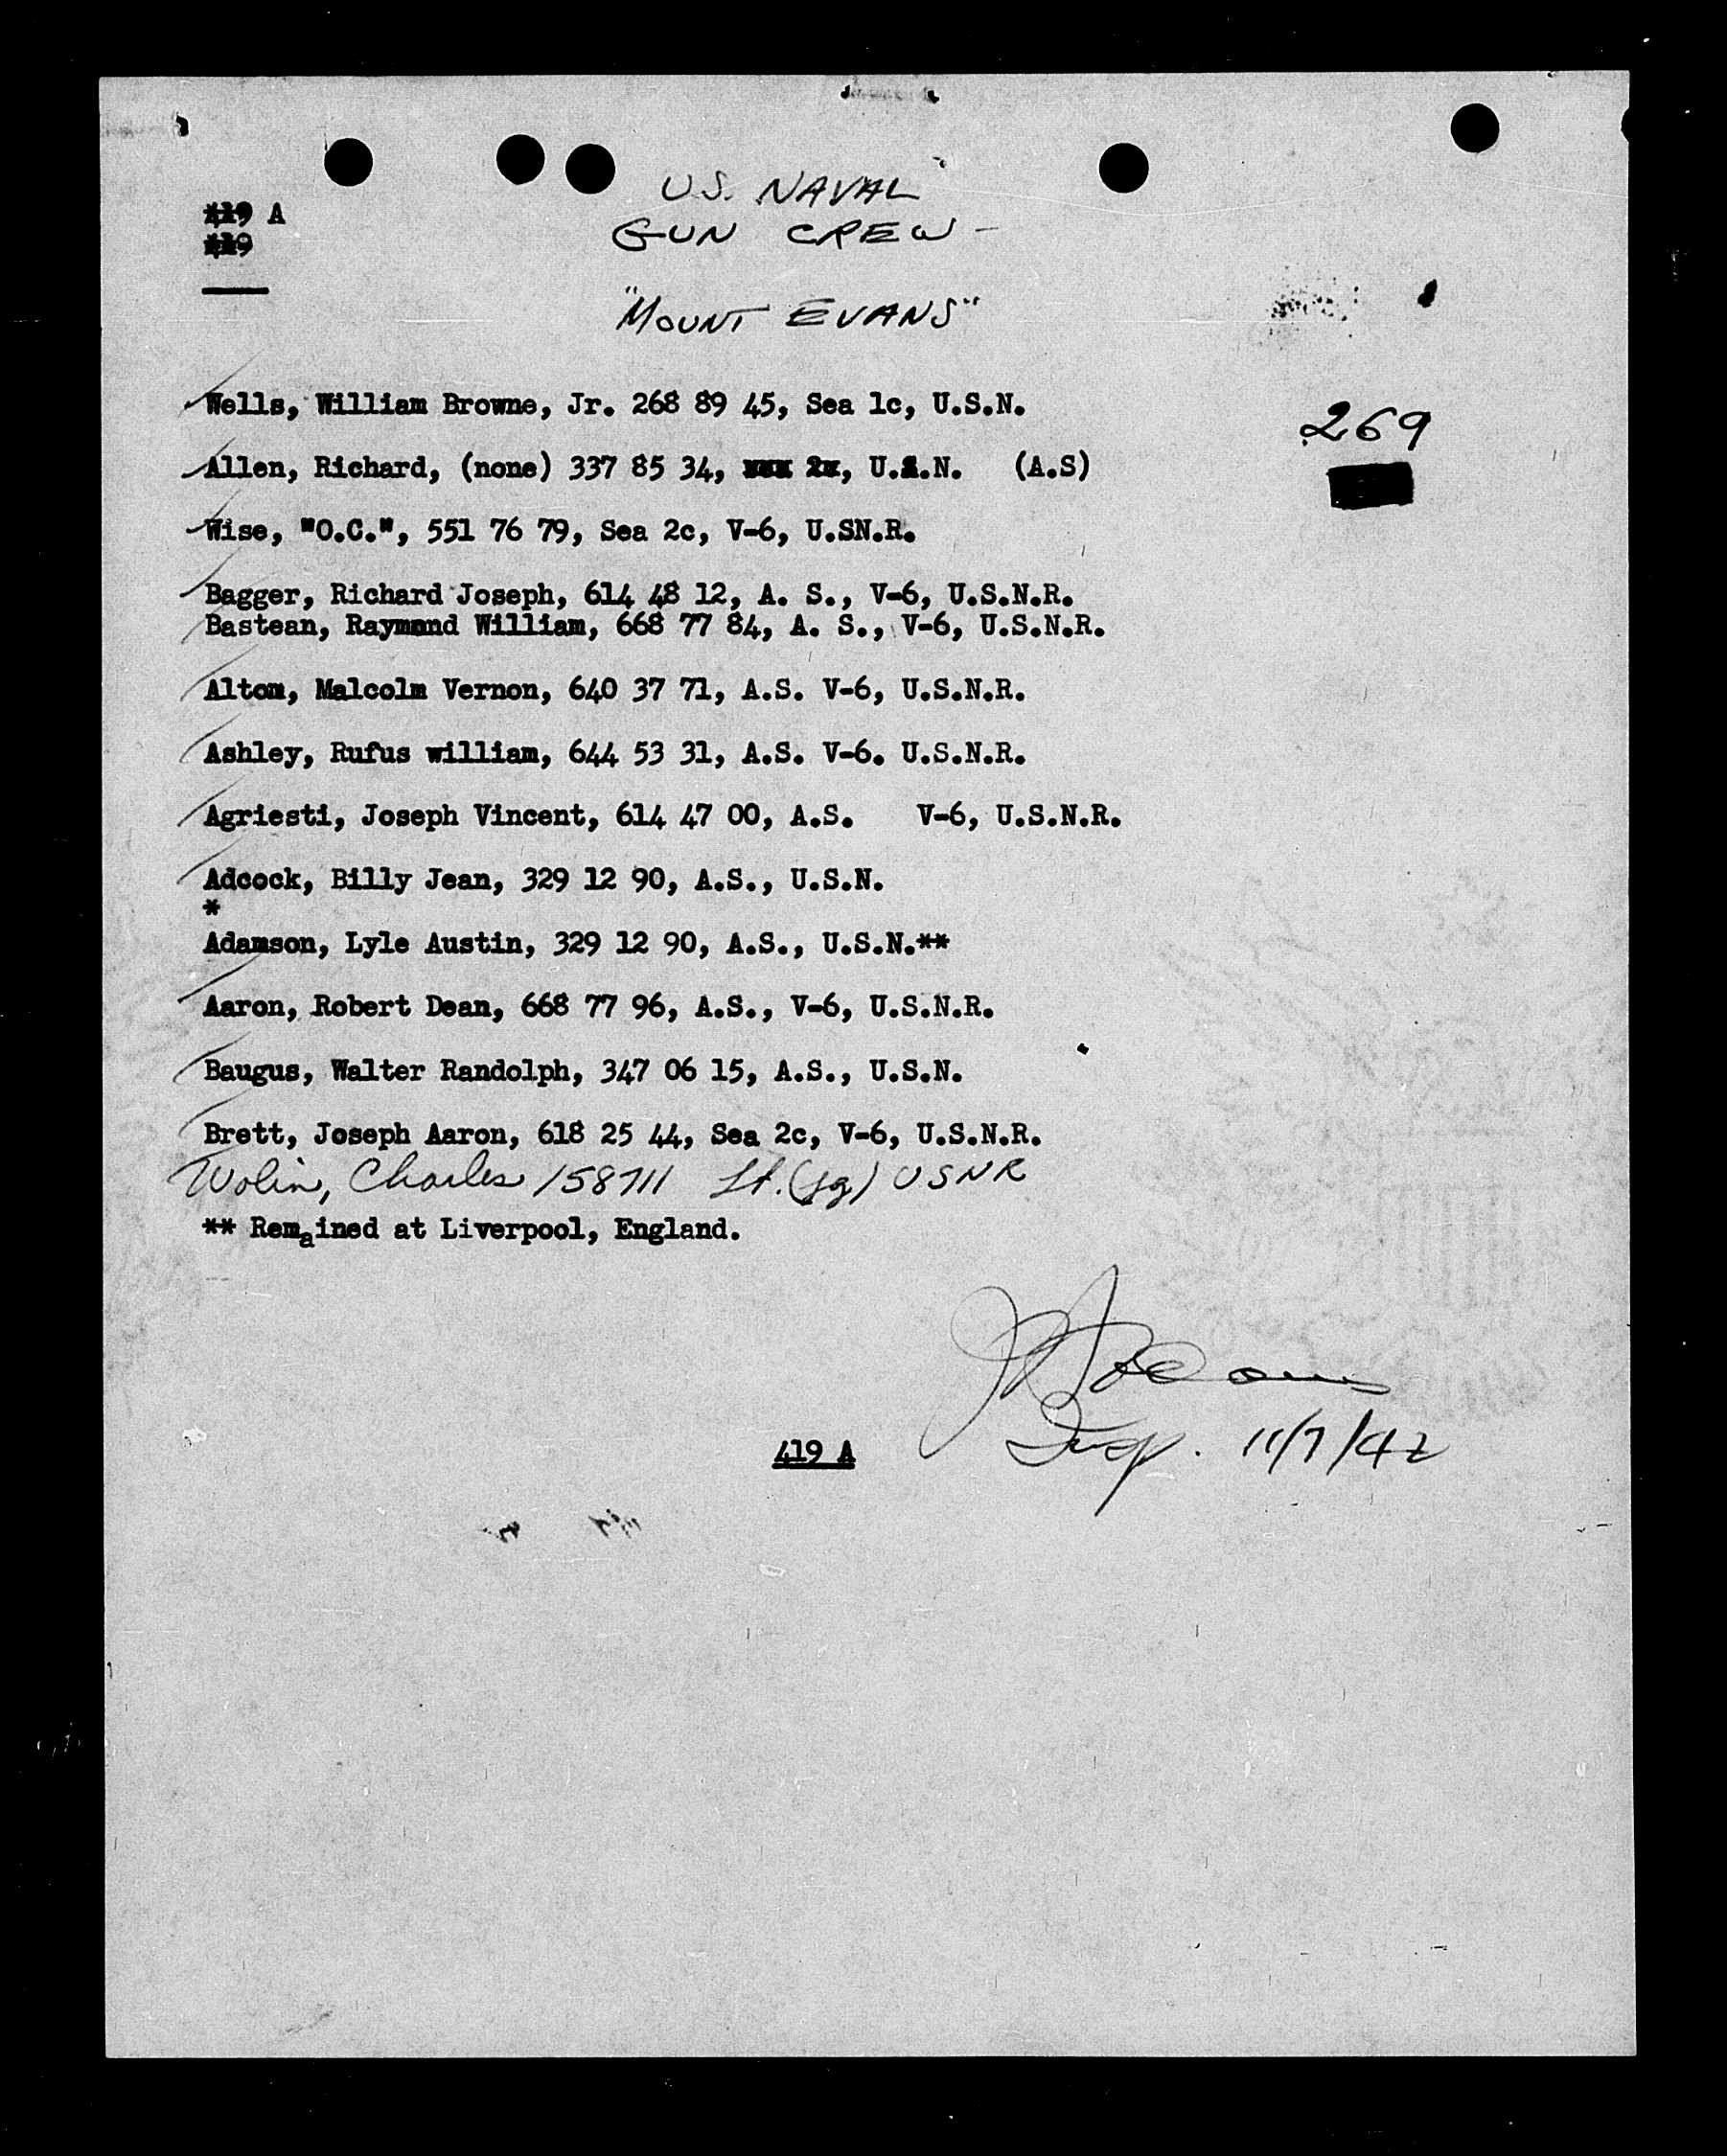 U.S. NAVAL
419 A
GUN CREW -
419
"MOUNT EVANS"
Wells, William Browne, Jr. 268 89 45, Sea 1c, U.S.N.
269
Allen, Richard, (none) 337 85 34, U.S.N. (A.S)
Wise, "O.C.", 551 76 79, Sea 2c, V-6, U.SN.R.
Bagger, Richard Joseph, 614 48 12, A. S., V-6, U.S.N.R.
Bastean, Raymond William, 668 77 84, A. S., V-6, U.S.N.R.
Altom, Malcolm Vernon, 640 37 71, A.S. V-6, U.S.N.R.
Ashley, Rufus william, 644 53 31, A.S. V-6. U.S.N.R.
Agriesti, Joseph Vincent, 614 47 00, A.S. V-6, U.S.N.R.
Adcock, Billy Jean, 329 12 90, A.S., U.S.N.
*
Adamson, Lyle Austin, 329 12 90, A.S., U.S.N.**
Aaron, Robert Dean, 668 77 96, A.S., V-6, U.S.N.R.
Baugus, Walter Randolph, 347 06 15, A.S., U.S.N.
Brett, Joseph Aaron, 618 25 44, Sea 2c, V-6, U.S.N.R.
Wolin, Charles 158711 Lt. (jg) USNR
** Remained at Liverpool, England.
419 A
Insp. 11/7/42